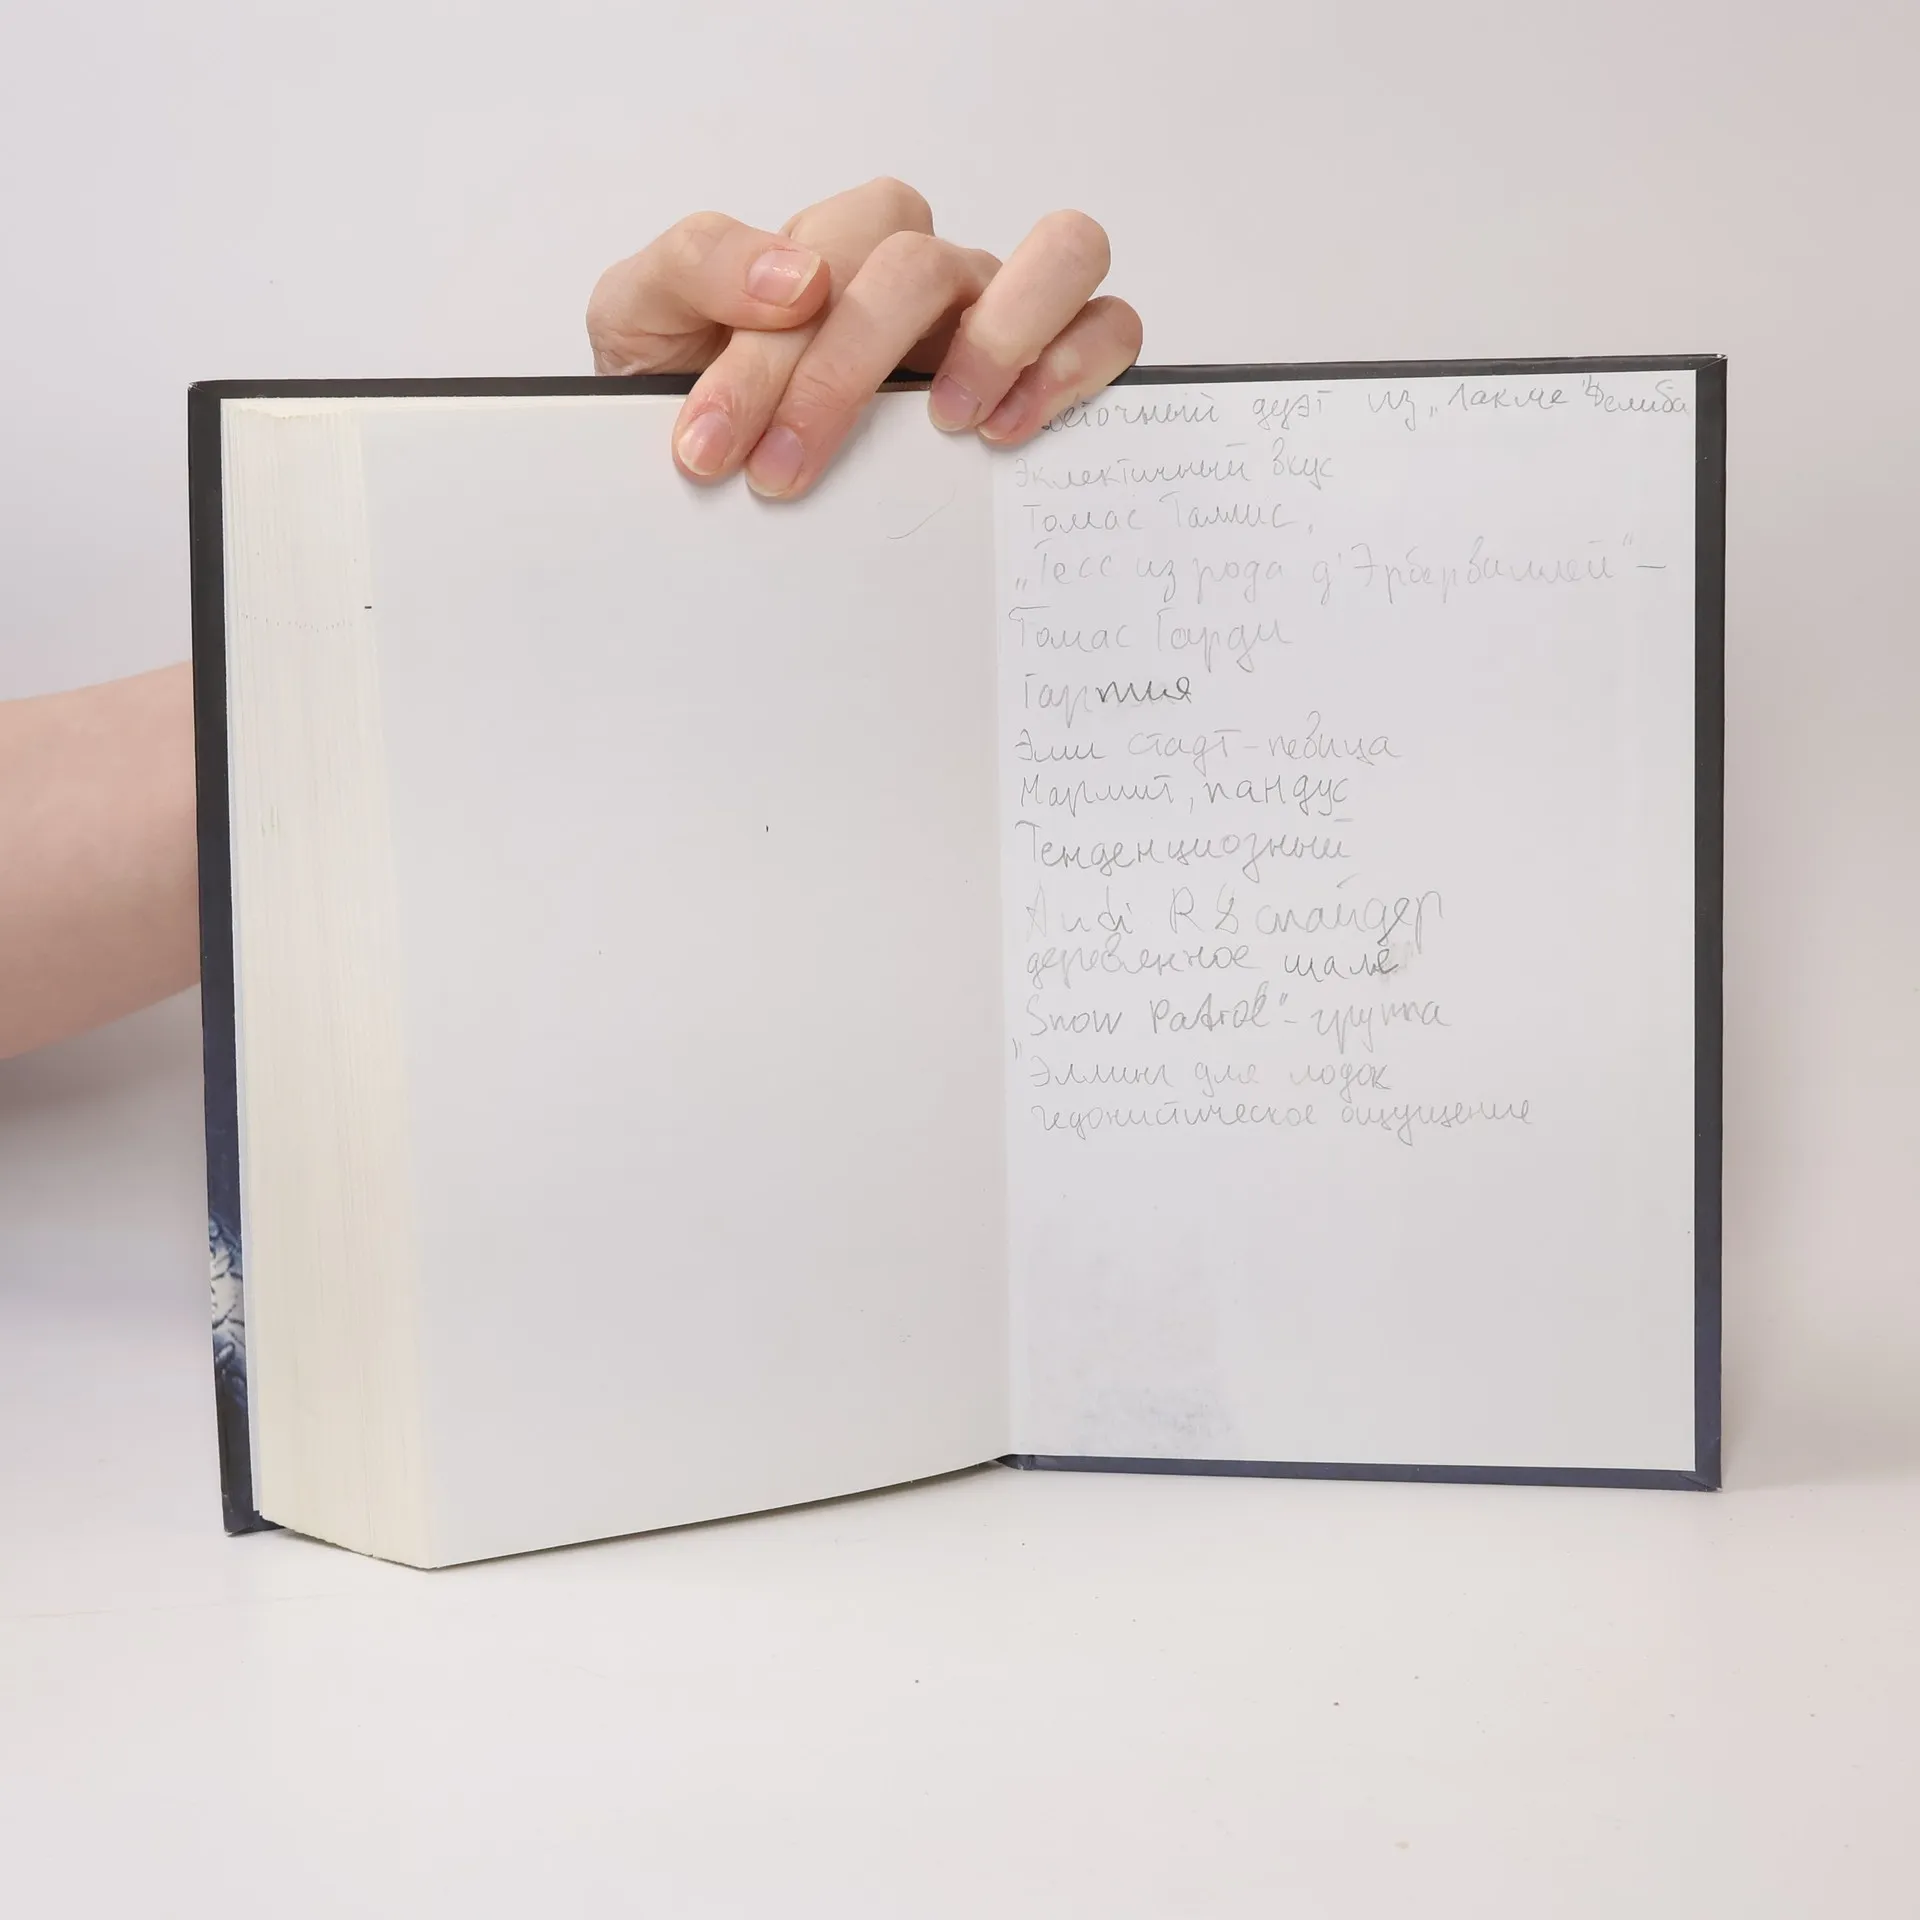 веточный дуэт из „Лакме" Делиба
Эклектичный вкус
Томас Таллис.
„Тесс из рода д'Эрбервиллей" –
Томас Гарди
Гарпия
Эли стадт – певица
Мармит, пандус
Тенденциозный
Audi R8 спайдер
деревянное шале
"Snow Patrol" – группа
Эллинг для лодок
гедонистическое ощущение